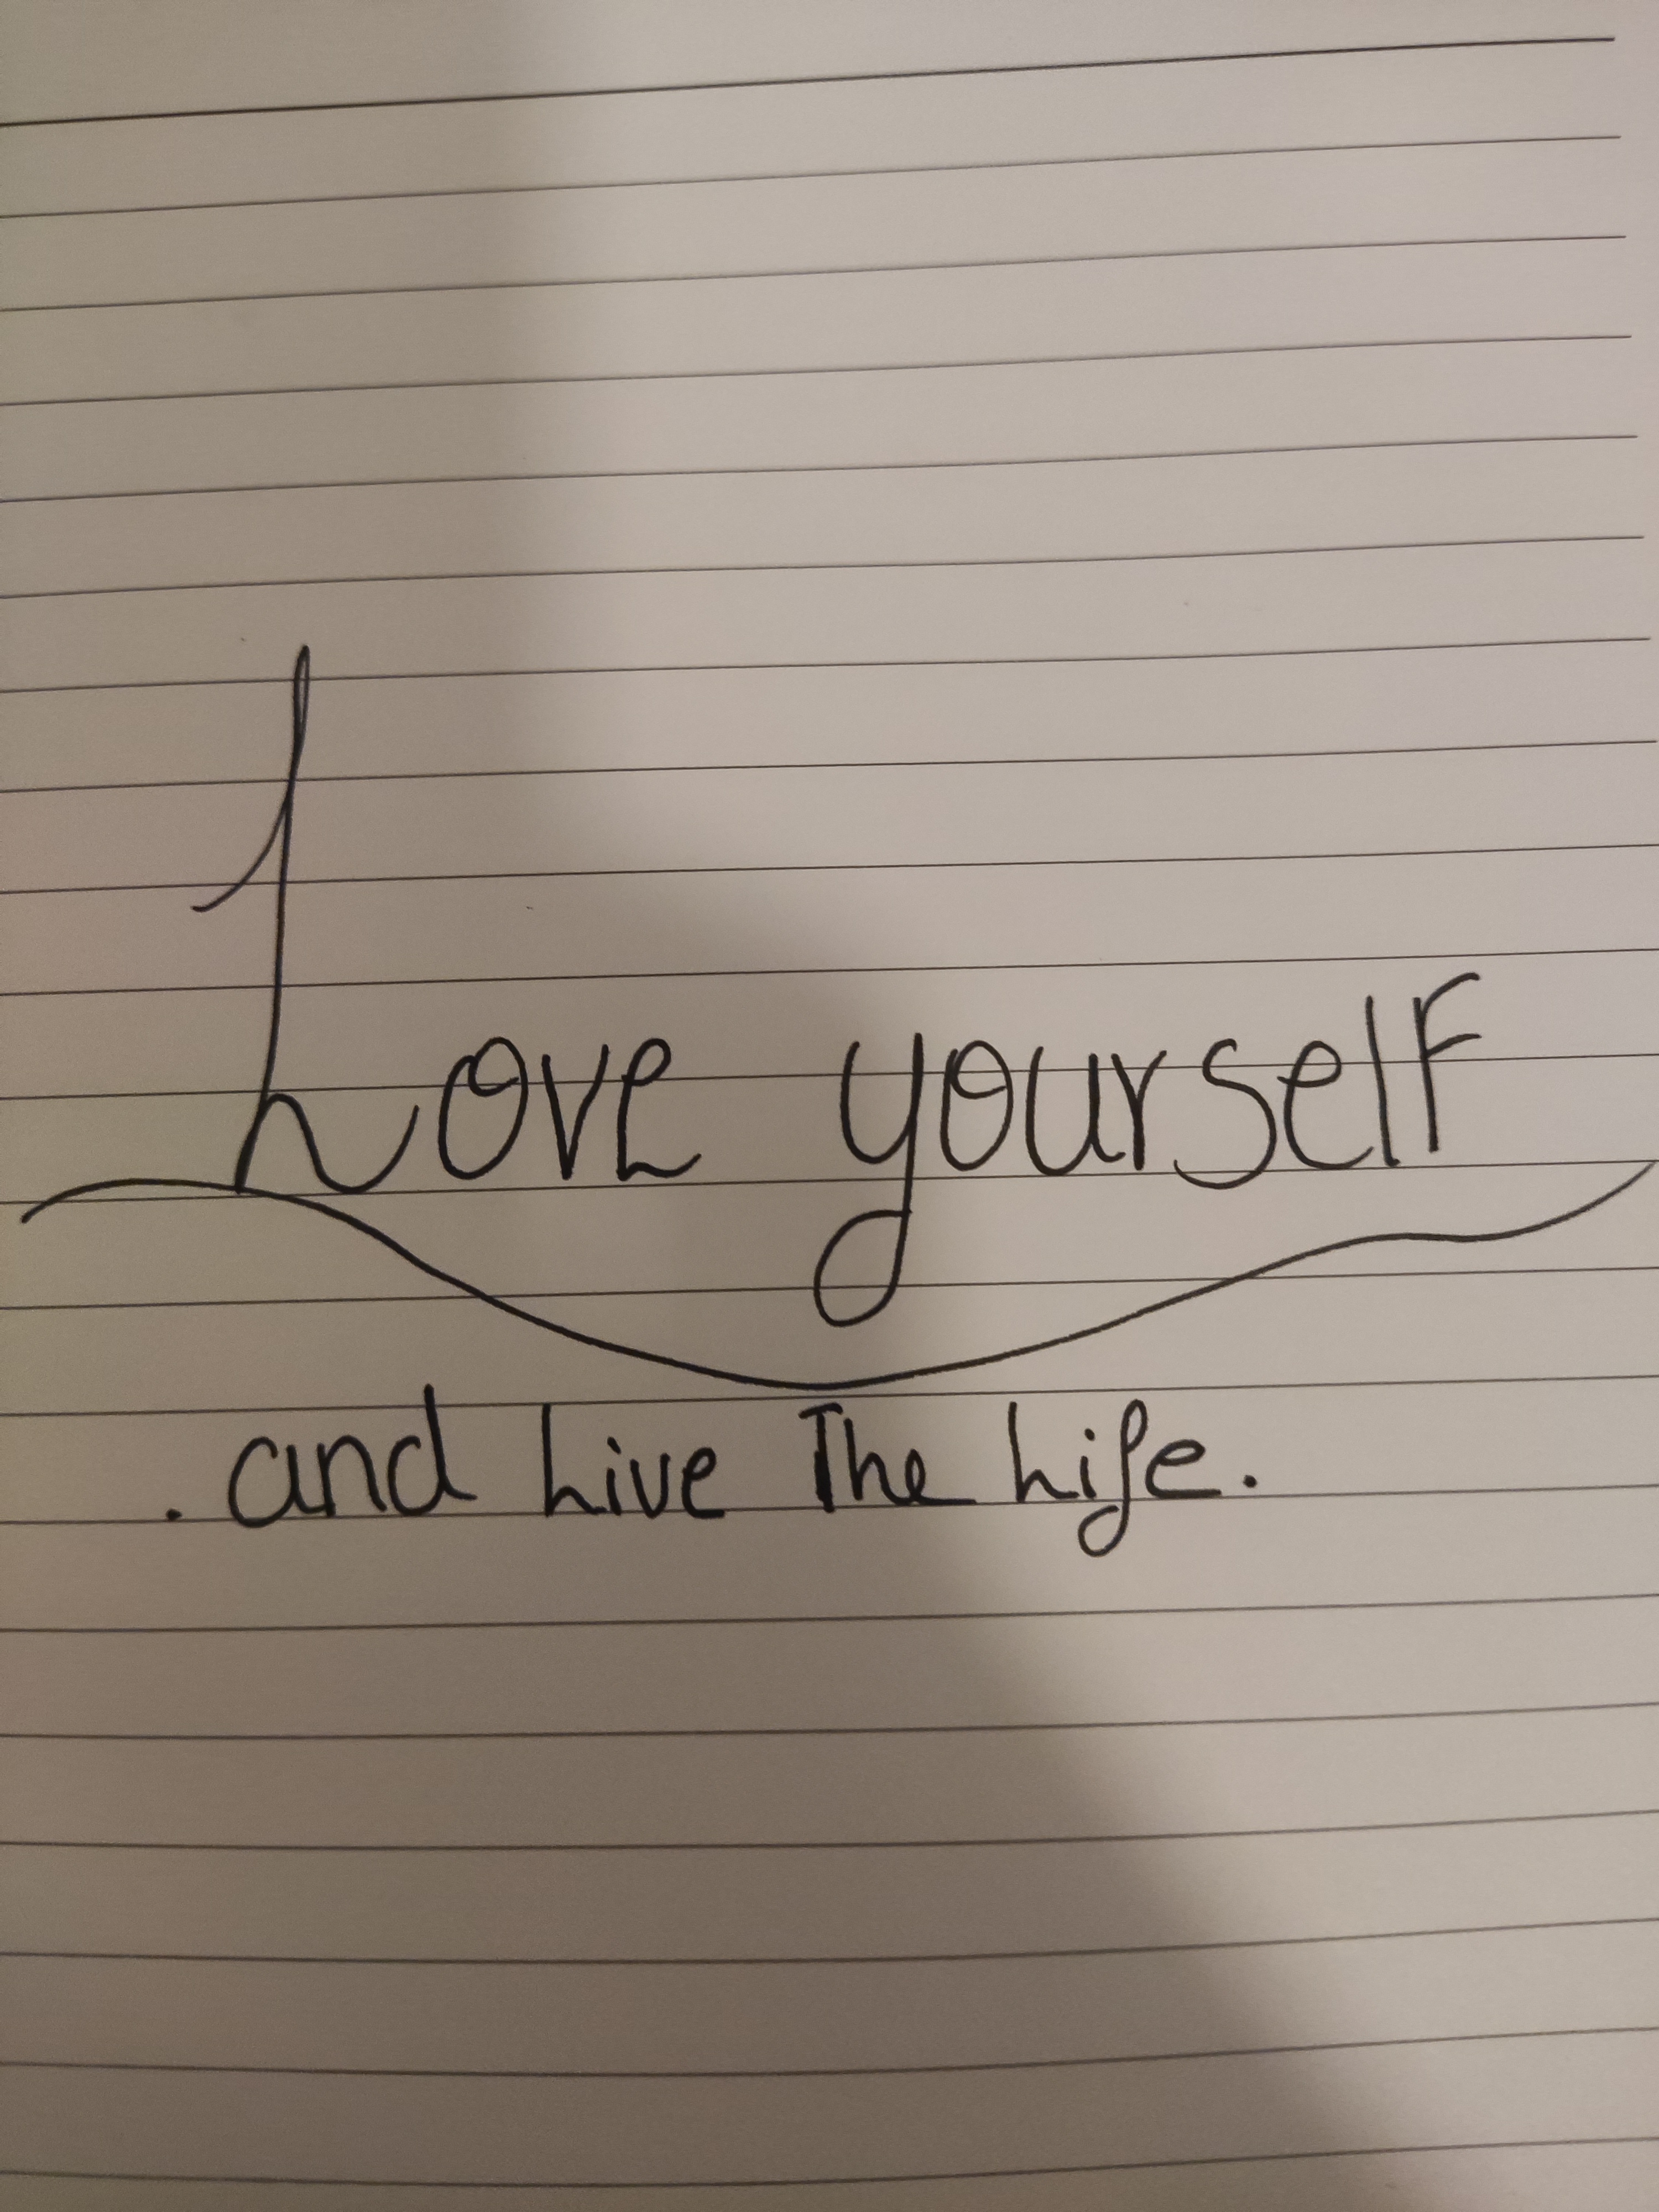 Love yourself
. and Live The Life.